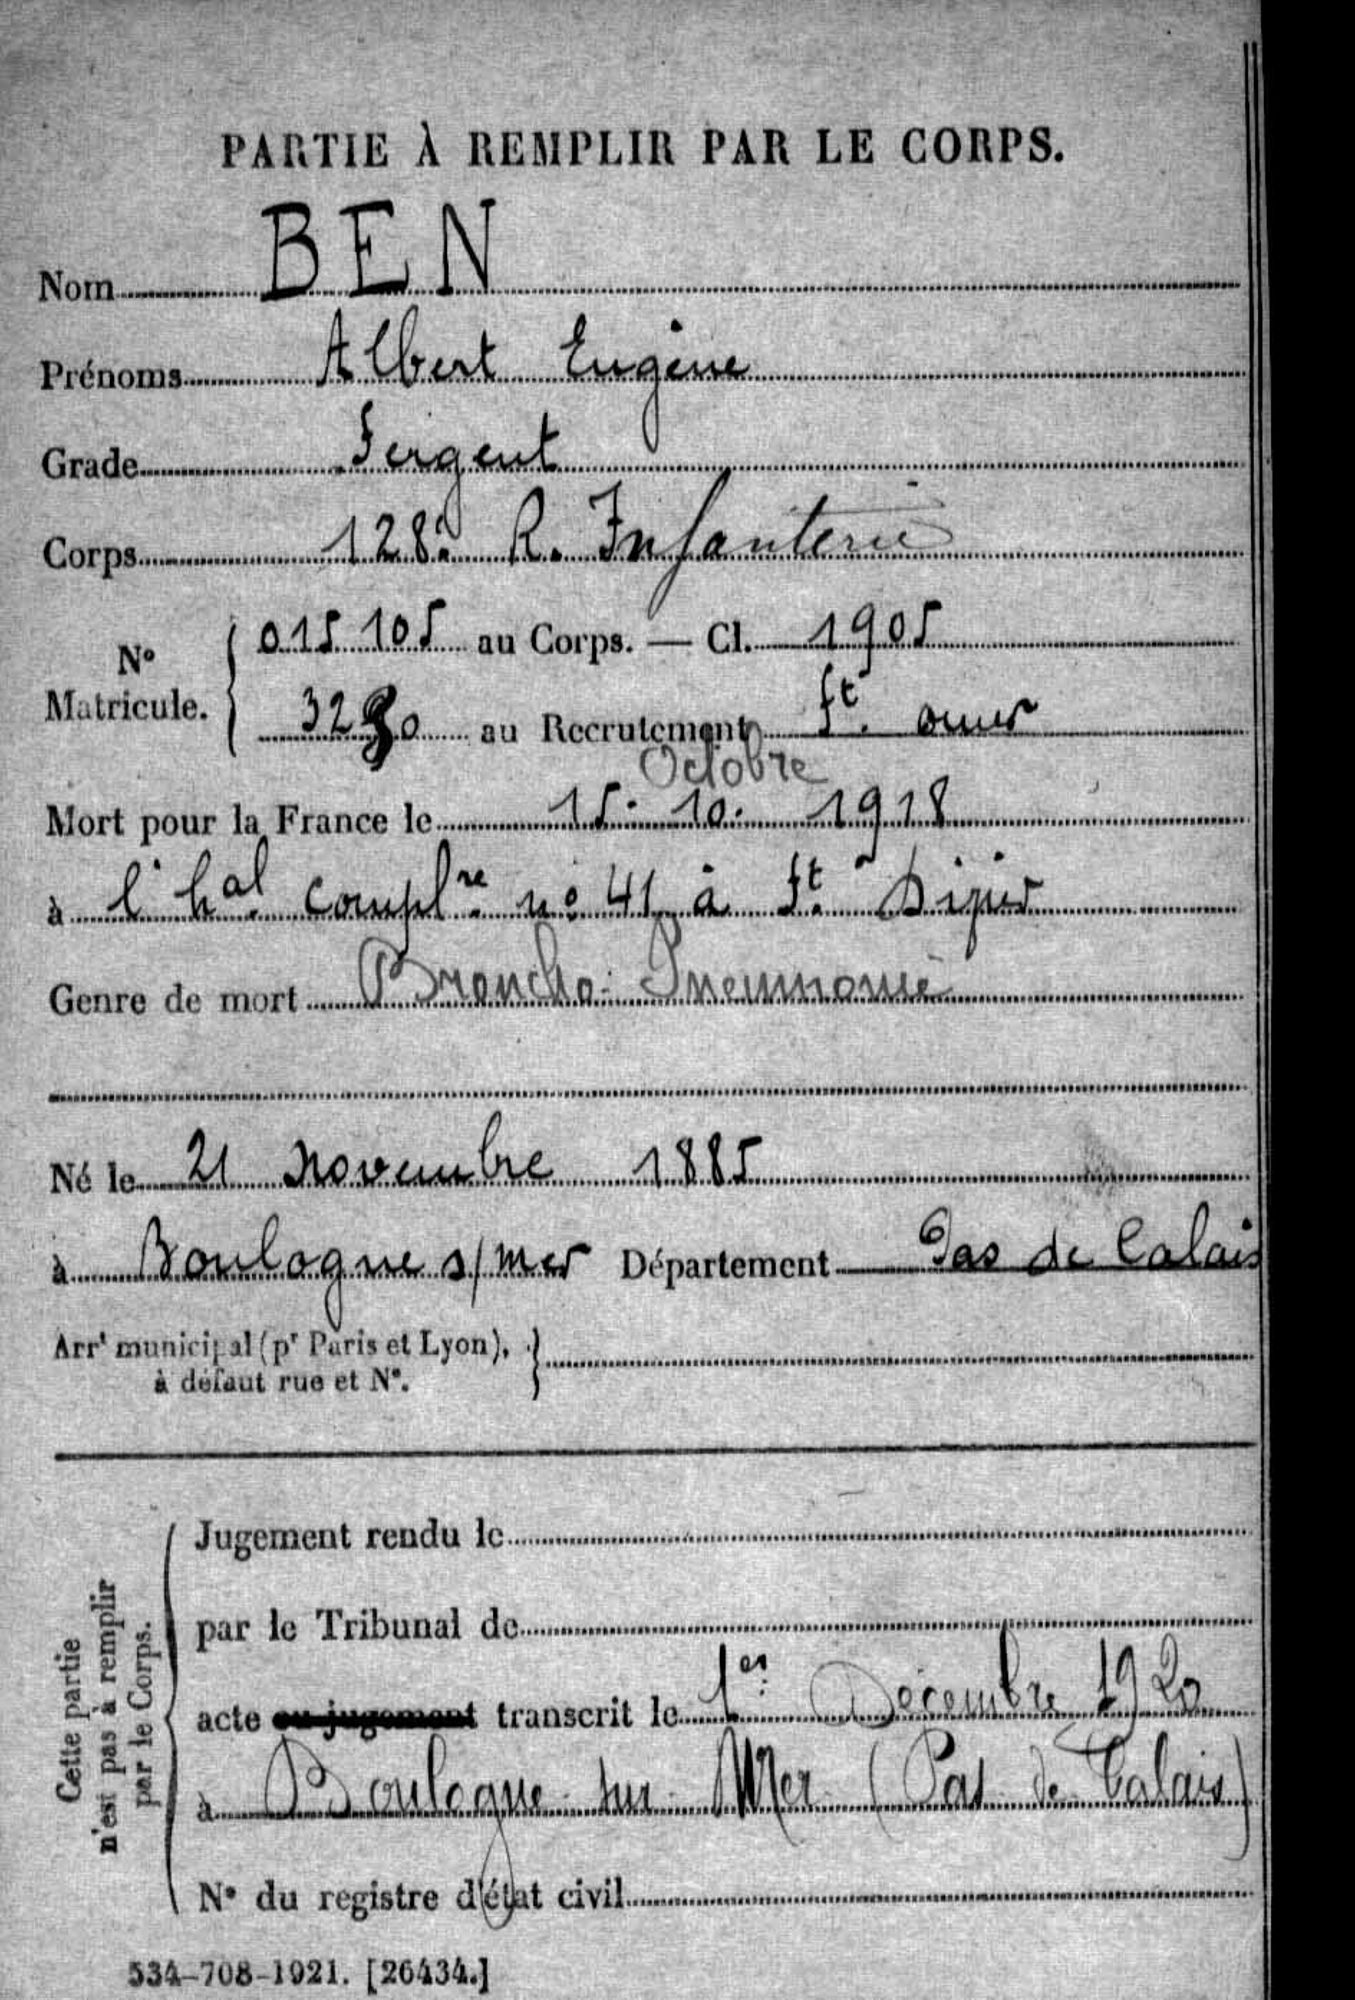 PARTIE À REMPLIR PAR LE CORPS.
Nom BEN
Prénoms Albert Eugène
Grade Sergent
Corps 128e R. Infanterie
N° Matricule. { 015 105 au Corps. — Cl. 1905
32 0 au Recrutement St. omer
Octobre
Mort pour la France le 15. 10. 1918
à l'hal complre no 41 à St Dizier
Genre de mort Broncho-Pneumonie
Né le 21 novembre 1885
à Boulogne s/mer Département Pas de Calais
Arrt municipal (pr Paris et Lyon), }
à défaut rue et N°.
Cette partie
n'est pas à remplir
par le Corps.
Jugement rendu le
par le Tribunal de
acte ou jugement transcrit le 1er Décembre 1920
à Boulogne sur Mer (Pas de Calais)
N° du registre d'état civil
534-708-1921. [26434.]